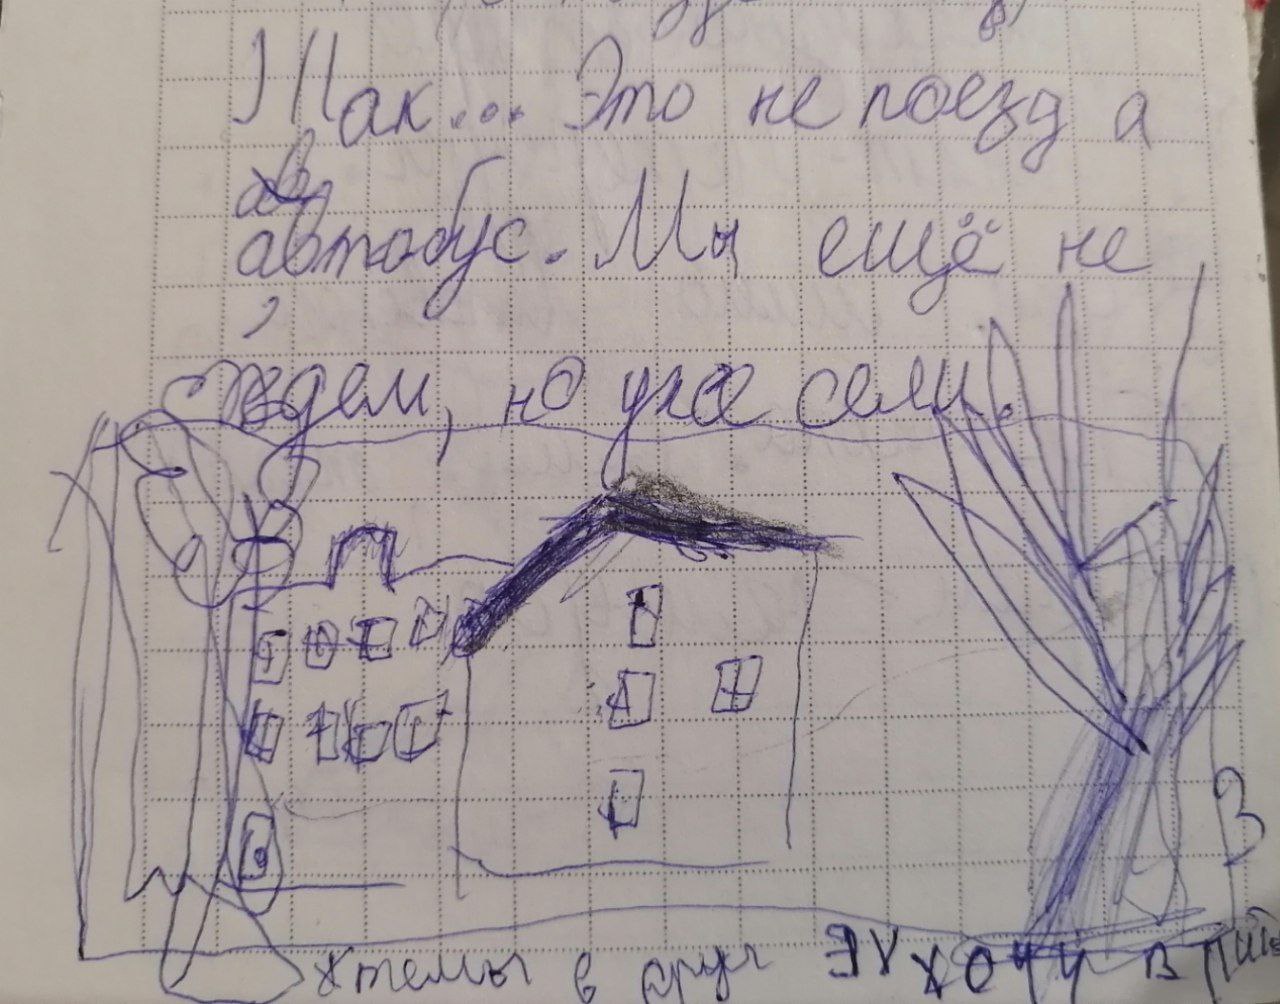 Так... Это не поезд а
автобус. Мы ещё не
едем, но уже сели.
темы в друг хочу в